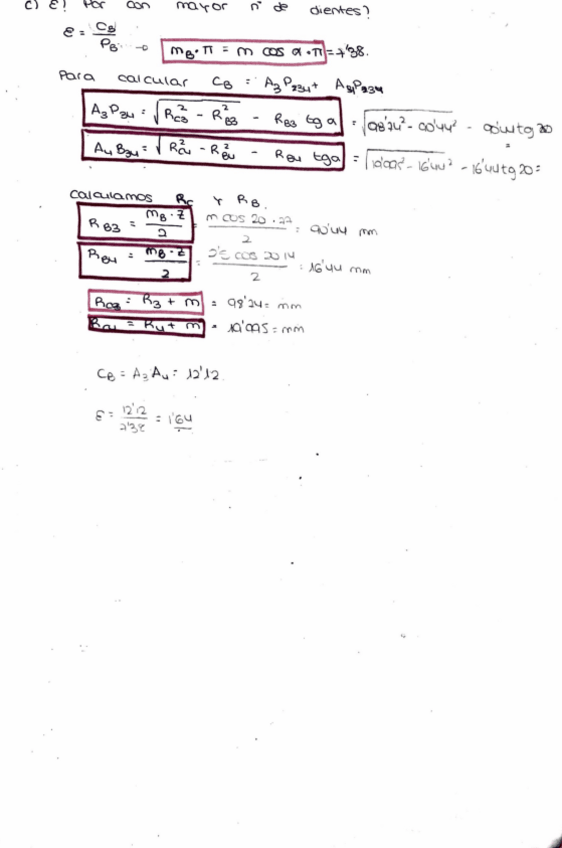 c) ε? Por con mayor nº de dientes?
ε = C_B / P_B → m_B · π = m cos α · π = 7'38.
Para calcular C_B = A_3P_234 + A_4P_234
A_3P_34 = √(R_C3² - R_B3²) - R_B3 tg a = √(98'24² - 90'44²) - 90'44 tg 20
A_4B_34 = √(R_C4² - R_B4²) - R_B4 tga = - 16'44² - 16'44 tg 20 =
Calculamos R_C Y R_B.
R_B3 = m_B · Z / 2 = m cos 20 · 77 / 2 = 90'44 mm
R_B4 = m_B · Z / 2 = 2'5 cos 20 14 / 2 = 16'44 mm
R_C3 = R_3 + m = 98'24 = mm
R_C4 = R_4 + m = = mm
C_B = A_3 A_4 = 12'12
ε = 12'12 / 7'38 = 1'64